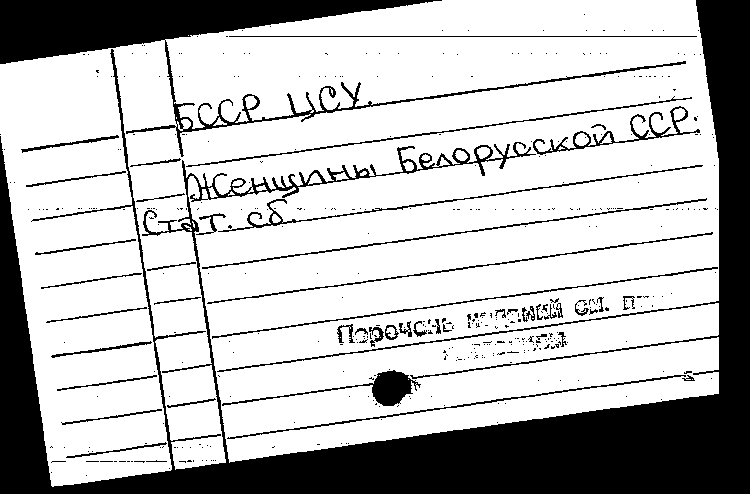 БССР. ЦСУ.
Женщины Белорусской ССР:
Стат. сб.
Перечень изданий см. п